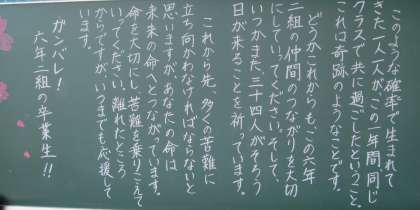 このような確率で生まれて
きた一人一人が、この一年間同じ
クラスで共に過ごしたということ。
これは奇跡のようなことです。
どうかこれからもこの六年
二組の仲間のつながりを大切
にしていってください。そして、
いつかまた三十四人がそろう
日が来ることを祈っています。
これから先、多くの苦難に
立ち向かわなければならないと
思いますが、あなたの命は
未来の命へとつながっています。
命を大切にし、苦難を乗りこえて
いってください。離れたところ
からですが、いつまでも応援して
います。
ガンバレ!
六年二組の卒業生!!